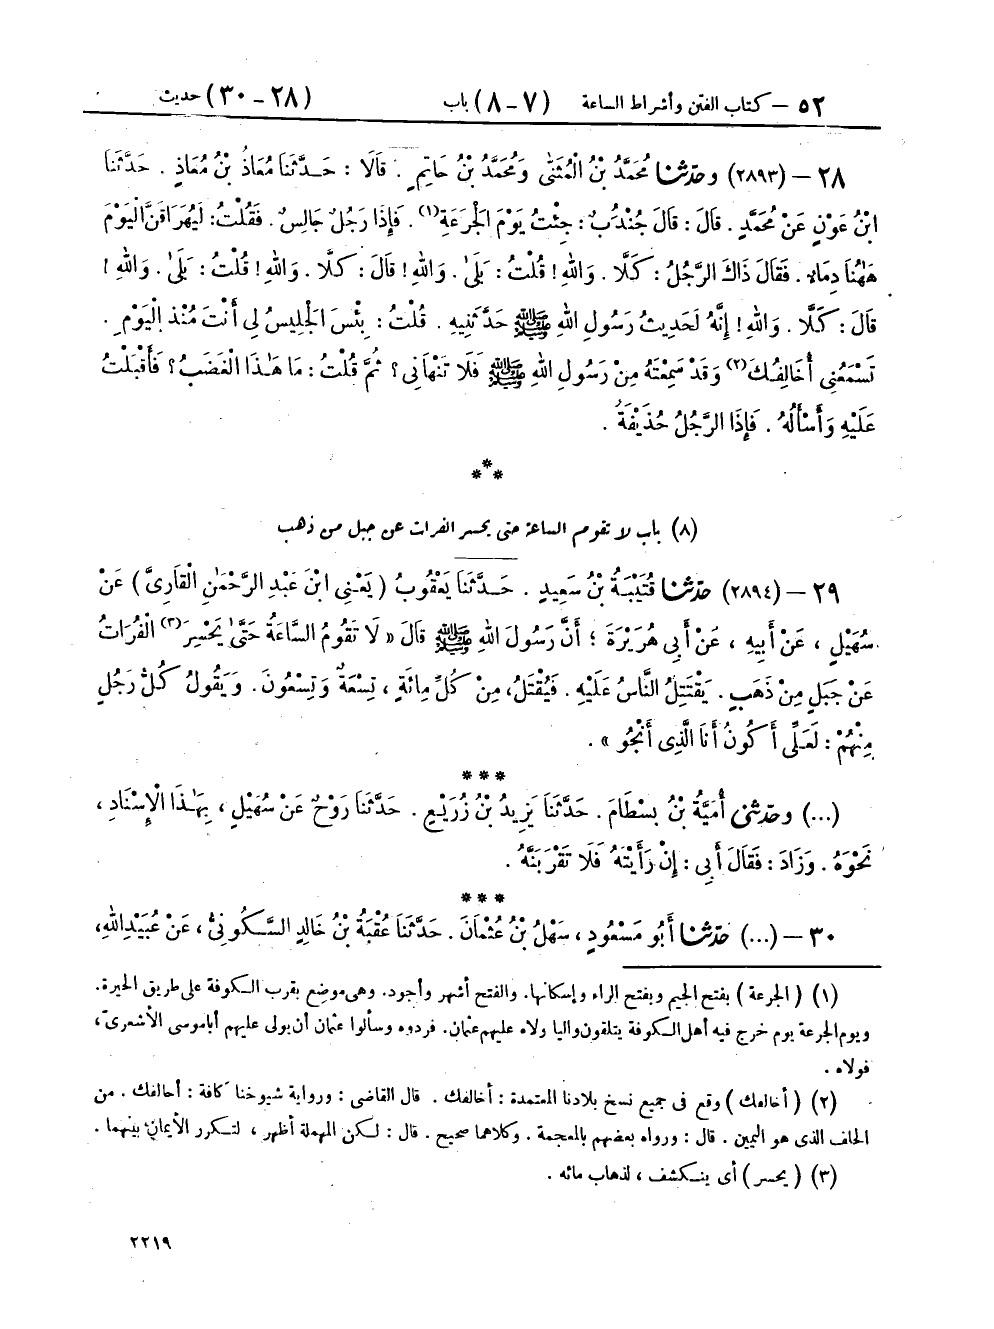 ٥٢ - كتاب الفتن وأشراط الساعة (٧-٨) باب (٢٨-٣٠) حديث
٢٨ - (٢٨٩٣) وحَدَّثَنَا مُحَمَّدُ بْنُ الْمُثَنَّىٰ وَمُحَمَّدُ بْنُ حَاتِمٍ . قَالَا : حَدَّثَنَا مُعَاذُ بْنُ مُعَاذٍ . حَدَّثَنَا
ابْنُ عَوْنٍ عَنْ مُحَمَّدٍ . قَالَ : قَالَ جُنْدُبٌ : جِئْتُ يَوْمَ الْجَرَعَةِ(١) . فَإِذَا رَجُلٌ جَالِسٌ . فَقُلْتُ : لَيُهْرَاقَنَّ الْيَوْمَ
هَٰهُنَا دِمَاءٌ . فَقَالَ ذَاكَ الرَّجُلُ : كَلَّا . وَاللهِ ! قُلْتُ : بَلَىٰ . وَاللهِ ! قَالَ : كَلَّا . وَاللهِ ! قُلْتُ : بَلَىٰ . وَاللهِ !
قَالَ : كَلَّا . وَاللهِ ! إِنَّهُ لَحَدِيثُ رَسُولِ اللهِ ﷺ حَدَّثَنِيهِ . قُلْتُ : بِئْسَ الْجَلِيسُ لِي أَنْتَ مُنْذُ الْيَوْمِ .
تَسْمَعُنِي أُخَالِفُكَ(٢) وَقَدْ سَمِعْتَهُ مِنْ رَسُولِ اللهِ ﷺ فَلَا تَنْهَانِي ؟ ثُمَّ قُلْتُ : مَا هَٰذَا الْغَضَبُ ؟ فَأَقْبَلْتُ
عَلَيْهِ وَأَسْأَلُهُ . فَإِذَا الرَّجُلُ حُذَيْفَةُ .
***
(٨) باب لا تقوم الساعة حتى يحسر الفرات عن جبل من ذهب
٢٩ - (٢٨٩٤) حَدَّثَنَا قُتَيْبَةُ بْنُ سَعِيدٍ . حَدَّثَنَا يَعْقُوبُ ( يَعْنِي ابْنَ عَبْدِ الرَّحْمَٰنِ الْقَارِيَّ ) عَنْ
سُهَيْلٍ ، عَنْ أَبِيهِ ، عَنْ أَبِي هُرَيْرَةَ ؛ أَنَّ رَسُولَ اللهِ ﷺ قَالَ « لَا تَقُومُ السَّاعَةُ حَتَّىٰ يَحْسِرَ(٣) الْفُرَاتُ
عَنْ جَبَلٍ مِنْ ذَهَبٍ . يَقْتَتِلُ النَّاسُ عَلَيْهِ . فَيُقْتَلُ ، مِنْ كُلِّ مِائَةٍ ، تِسْعَةٌ وَتِسْعُونَ . وَيَقُولُ كُلُّ رَجُلٍ
مِنْهُمْ : لَعَلِّي أَكُونُ أَنَا الَّذِي أَنْجُو » .
***
(...) وحَدَّثَنِي أُمَيَّةُ بْنُ بِسْطَامَ . حَدَّثَنَا يَزِيدُ بْنُ زُرَيْعٍ . حَدَّثَنَا رَوْحٌ عَنْ سُهَيْلٍ ، بِهَٰذَا الْإِسْنَادِ ،
نَحْوَهُ . وَزَادَ : فَقَالَ أَبِي : إِنْ رَأَيْتَهُ فَلَا تَقْرَبَنَّهُ .
***
٣٠ - (...) حَدَّثَنَا أَبُو مَسْعُودٍ ، سَهْلُ بْنُ عُثْمَانَ . حَدَّثَنَا عُقْبَةُ بْنُ خَالِدٍ السَّكُونِيُّ ، عَنْ عُبَيْدِ اللهِ،
(١) ( الجرعة ) بفتح الجيم وبفتح الراء وإسكانها. والفتح أشهر وأجود. وهى موضع بقرب الكوفة على طريق الحيرة.
ويوم الجرعة يوم خرج فيه أهل الكوفة يتلقون واليا ولاه عليهم عثمان. فردوه وسألوا عثمان أن يولى عليهم أبا موسى الأشعرىّ،
فولاه .
(٢) ( أخالفك ) وقع فى جميع نسخ بلادنا المعتمدة : أخالفك . قال القاضى : ورواية شيوخنا كافة : أحالفك . من
الحلف الذى هو اليمين . قال : ورواه بعضهم بالمعجمة . وكلاهما صحيح . قال : لكن المهملة أظهر ، لتكرر الأيمان بينهما .
(٣) ( يحسر ) أى ينكشف ، لذهاب مائه .
٢٢١٩